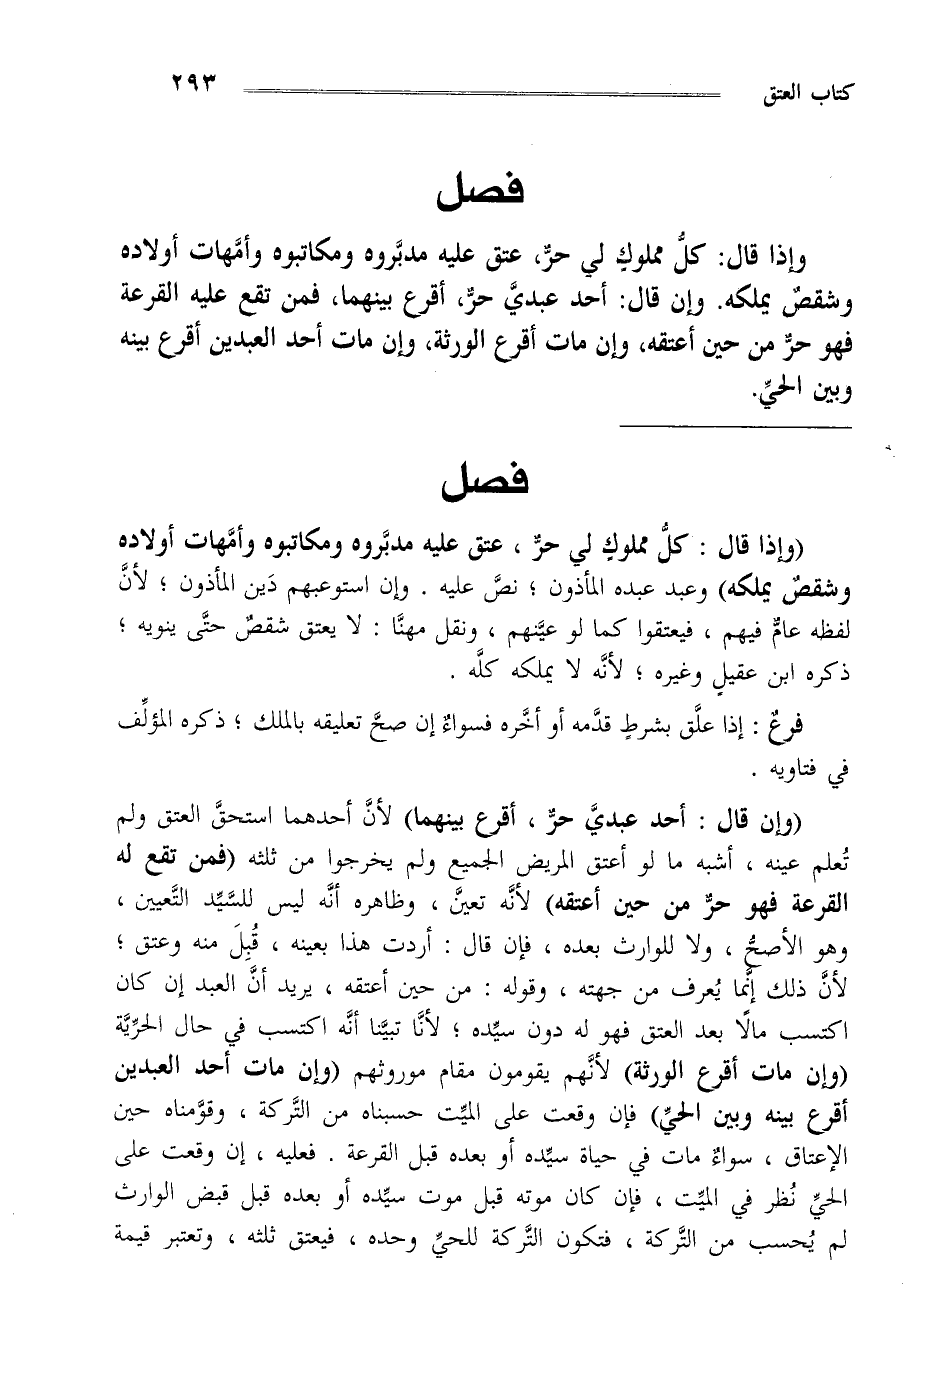 كتاب العتق ٢٩٣
فصل
وإذا قال: كلُّ مملوكٍ لي حرٌّ، عتق عليه مدبَّروه ومكاتبوه وأمَّهات أولاده
وشقصٌ يملكه. وإن قال: أحد عبديَّ حرٌّ، أقرع بينهما، فمن تقع عليه القرعة
فهو حرٌّ من حين أعتقه، وإن مات أقرع الورثة، وإن مات أحد العبدين أقرع بينه
وبين الحيِّ.
فصل
(وإذا قال : كلُّ مملوكٍ لي حرٌّ ، عتق عليه مدبَّروه ومكاتبوه وأمَّهات أولاده
وشقصٌ يملكه) وعبد عبده المأذون ؛ نصَّ عليه . وإن استوعبهم دَين المأذون ؛ لأنَّ
لفظه عامٌّ فيهم ، فيعتقوا كما لو عيَّنهم ، ونقل مهنَّا : لا يعتق شقصٌ حتَّى ينويه ؛
ذكره ابن عقيلٍ وغيره ؛ لأنَّه لا يملكه كلَّه .
فرعٌ : إذا علَّق بشرطٍ قدَّمه أو أخَّره فسواءٌ إن صحَّ تعليقه بالملك ؛ ذكره المؤلِّف
في فتاويه .
(وإن قال : أحد عبديَّ حرٌّ ، أقرع بينهما) لأنَّ أحدهما استحقَّ العتق ولم
تُعلم عينه ، أشبه ما لو أعتق المريض الجميع ولم يخرجوا من ثلثه (فمن تقع له
القرعة فهو حرٌّ من حين أعتقه) لأنَّه تعينَّ ، وظاهره أنَّه ليس للسَّيِّد التَّعيين ،
وهو الأصحُّ ، ولا للوارث بعده ، فإن قال : أردت هذا بعينه ، قُبِلَ منه وعتق ؛
لأنَّ ذلك إنَّما يُعرف من جهته ، وقوله : من حين أعتقه ، يريد أنَّ العبد إن كان
اكتسب مالًا بعد العتق فهو له دون سيِّده ؛ لأنَّا تبيَّنا أنَّه اكتسب في حال الحرِّيَّة
(وإن مات أقرع الورثة) لأنَّهم يقومون مقام موروثهم (وإن مات أحد العبدين
أقرع بينه وبين الحيِّ) فإن وقعت على الميِّت حسبناه من التَّركة ، وقوَّمناه حين
الإعتاق ، سواءٌ مات في حياة سيِّده أو بعده قبل القرعة . فعليه ، إن وقعت على
الحيِّ نُظر في الميِّت ، فإن كان موته قبل موت سيِّده أو بعده قبل قبض الوارث
لم يُحسب من التَّركة ، فتكون التَّركة للحيِّ وحده ، فيعتق ثلثه ، وتعتبر قيمة